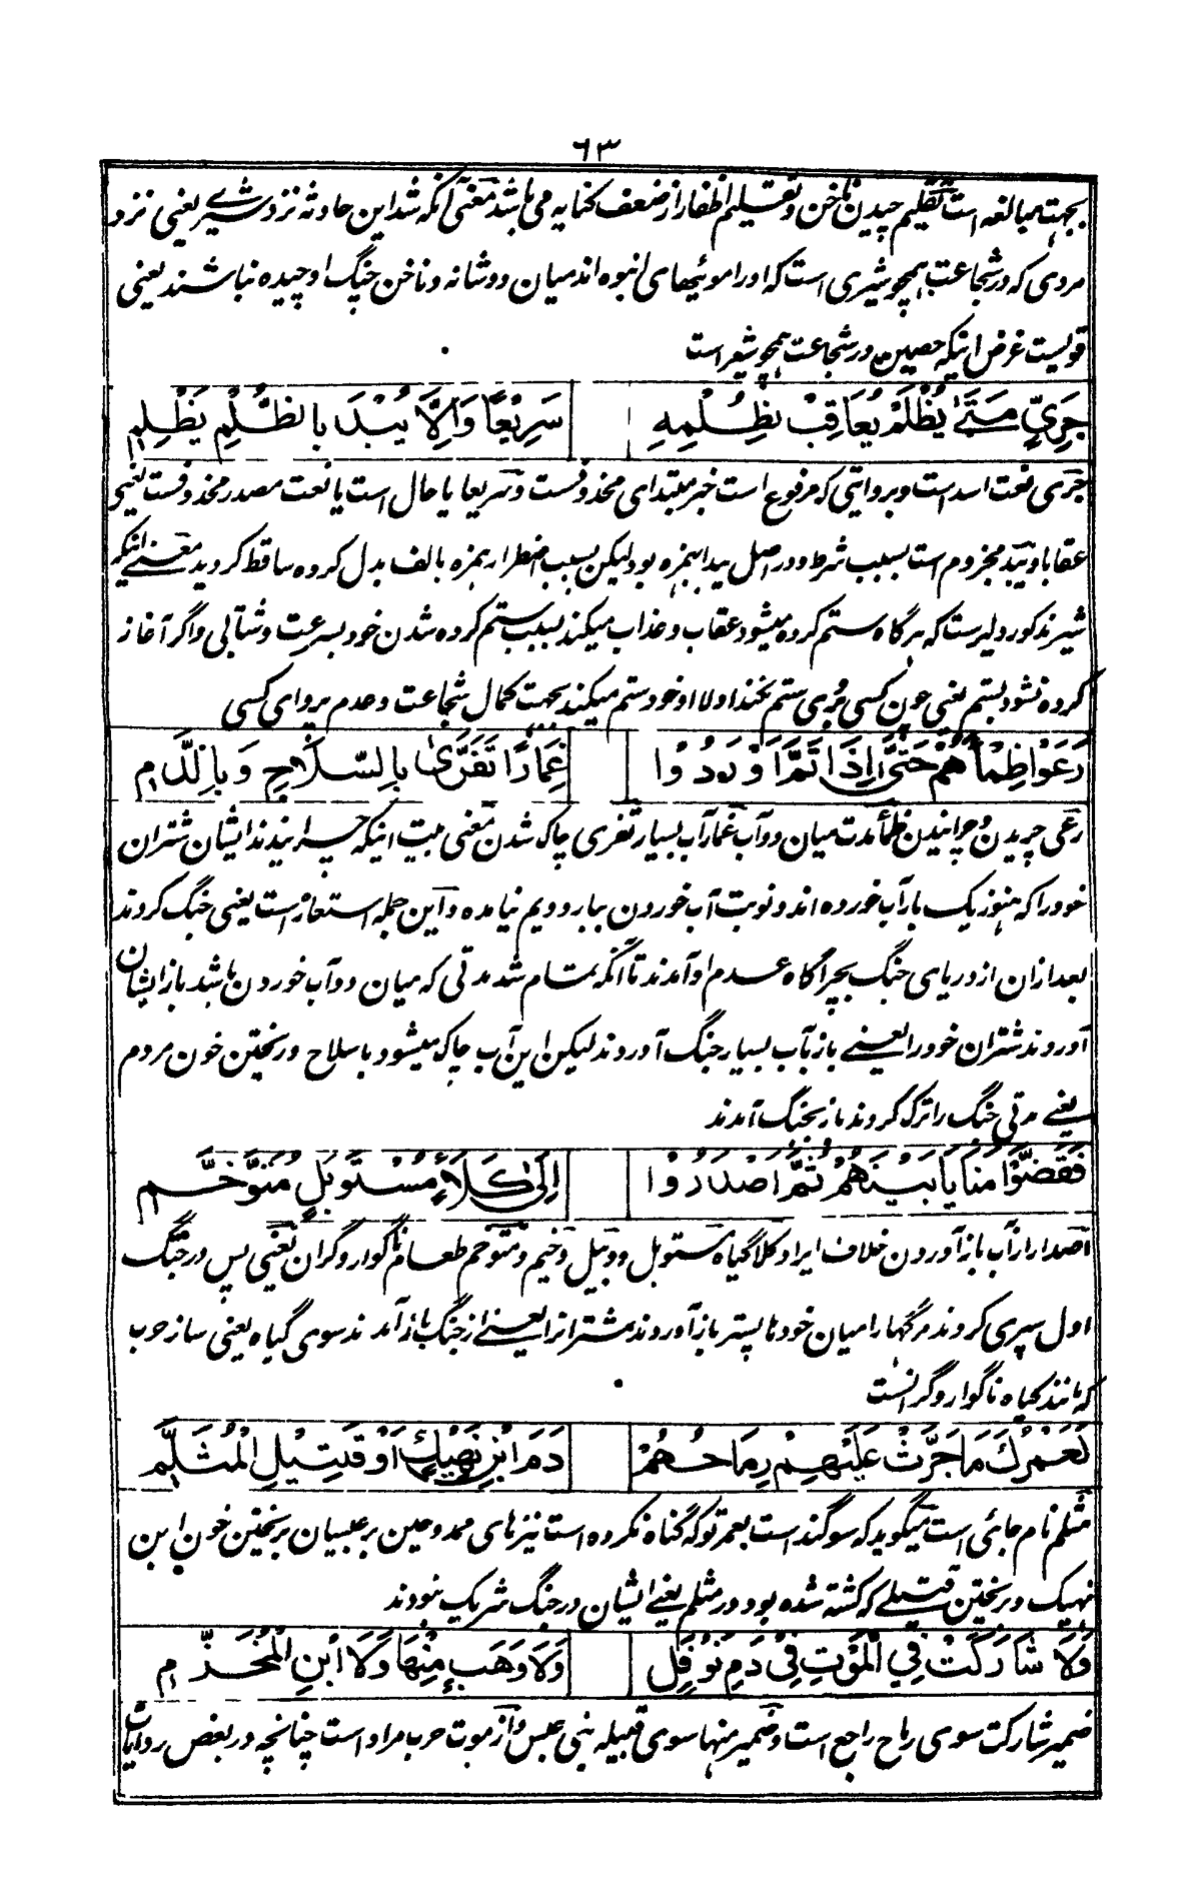 ٦٣
بجهت مبالغه است تقلیم چیدن ناخن و تقلیم اظفار از ضعف کنایه می باشد معنی آنکه شد این حادثه نزد شیرے یعنی نزد
مردی که در شجاعت همچو شیری است که او را موئیهای انبوه اند میان دو شانه و ناخن چنگ او چیده نباشند یعنی
قویست غرض اینکه حصین در شجاعت همچو شیر است
جَرِيٍّ مَتَىٰ يُظْلَمْ يُعَاقِبْ بِظُلْمِهِ سَرِيْعًا وَاِلَّا يُبْدَ بِالظُّلْمِ يَظْلِمِ
جرَی نعت اسد است و بروایتی که مرفوع است خبر مبتدای محذوفست و سَریعا یا حال است یا نعت مصدر محذوفست یعنی
عقابا و یبد مجزوم است بسبب شرط و در اصل یبدا بهمزه بود لیکن بسبب اضطرار همزه بالف بدل کرده ساقط کردید معنے اینکه
شیر مذکور دلیرست که هرگاه ستم کرده میشود عقاب و عذاب میکند بسبب ستم کرده شدن خود بسرعت و شتابی و اگر آغاز
کرده نشود بستم یعنی چون کسی بروی ستم نکند اولا او خود ستم میکند بجهت کمال شجاعت و عدم پروای کسی
رَعَوْا ظِمْأَهُمْ حَتَّىٰ اِذَا تَمَّ اَوْرَدُوْا غِمَارًا تَفَرَّىٰ بِالسِّلَاحِ وَبِالدَّمِ
رَعی چریدن و چرانیدن ظمأ مدت میان دو آب غمار آب بسیار تفری چاک شدن معنی بیت اینکه چرانیدند ایشان شتران
خود را که هنوز یک بار آب خورده اند و نوبت آب خوردن ببار دویم نیامده و این جمله استعاره است یعنی جنگ کردند
بعد ازان از دریای جنگ بچراگاه عدم او آمدند تا آنکه تمام شد مدتی که میان دو آب خوردن باشد باز ایشان
آوردند شتران خود را یعنے باز بآب بسیار جنگ آوردند لیکن این آب چاک میشود باسلاح و ریختن خون مردم
یعنے مدتی جنگ را ترک کردند باز بجنگ آمدند
فَقَضَّوْا مَنَايَا بَيْنَهُمْ ثُمَّ اَصْدَرُوْا اِلَىٰ كَلَأٍ مُسْتَوْبَلٍ مُتَوَخَّمِ
اصدار از آب باز آوردن خلاف ایراد کلا گیاه مستوبل و وبیل و خیم و متوخم طعام ناگوار و گران یعنی پس در جنگ
اول سپری کردند مرگها را میان خودها پستر باز آوردند شتران را یعنے از جنگ باز آمدند سوی گیاه یعنی ساز حرب
که مانند گیاه ناگوار و گرانست
لَعَمْرُكَ مَا جَرَّتْ عَلَيْهِمْ رِمَاحُهُمْ دَمَ ابْنِ نَهِيْكٍ اَوْ قَتِيْلِ الْمُثَلَّمِ
مثلم نام جائی است میگوید که سوگند است بعمر تو که گناه نکرده است نیزهای ممدوحین بر عبسیان بریختن خون ابن
نهیک و بریختن قتیلے که کشته شده بود در مثلم یعنے ایشان در جنگ شریک نبودند
وَلَا شَارَكَتْ فِي الْمَوْتِ فِيْ دَمِ نَوْفَلِ وَلَا وَهَبٍ مِنْهَا وَلَا ابْنِ الْمُخَذَّمِ
ضمیر شارکت سوی رماح راجع است و ضمیر منها سوی قبیله بنی عبس و از موت حرب مراد است چنانچه در بعض روایات